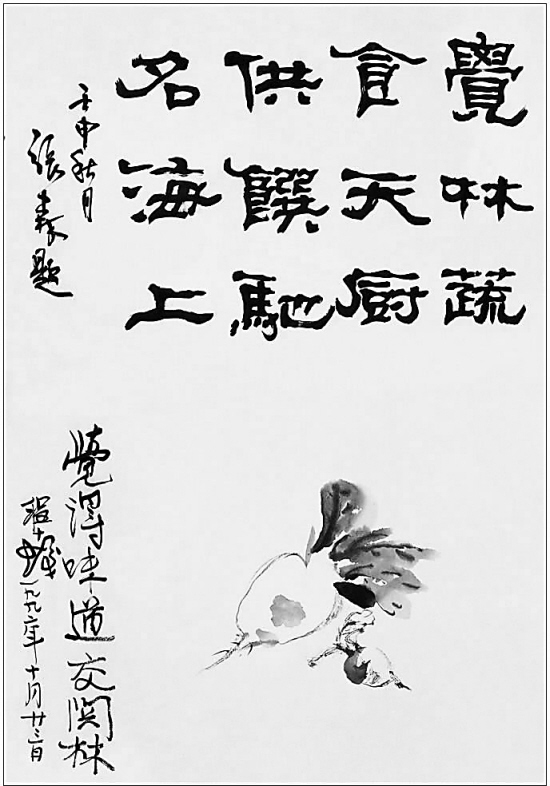 覺林蔬
食天厨
供饌馳
名海上
壬申秋月
張森題
覺得味道交関林
程十髮 一九九二年十月廿二日